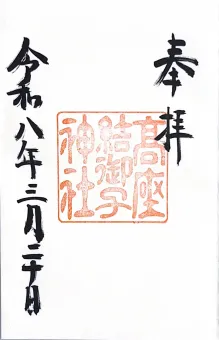 奉拝
高座
結御子
神社
令和八年三月二十日